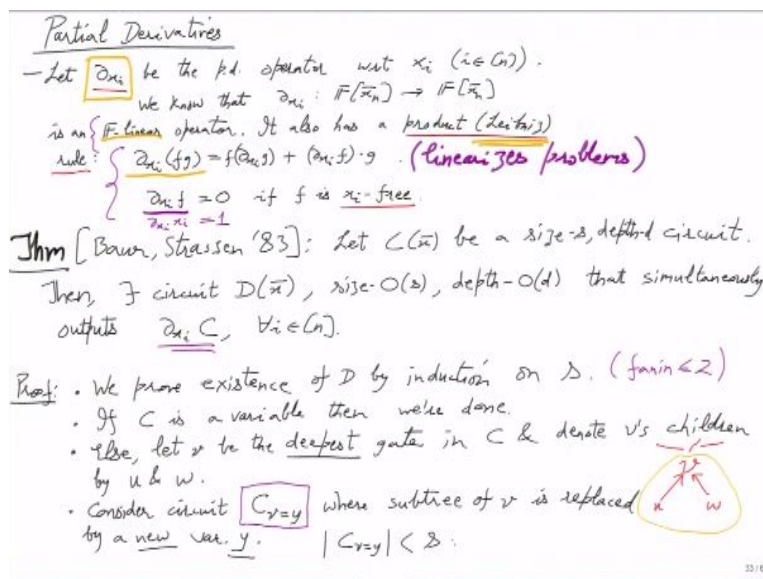 Partial Derivatives
- Let ∂xi be the p.d. operator wrt xi (i∈[n]).
We know that ∂xi : F[x̄n] → F[x̄n]
is an F-linear operator. It also has a product (Leibniz)
rule: ∂xi(fg) = f(∂xi g) + (∂xi f)·g. (linearizes problems)
∂xi f = 0 if f is xi-free.
∂xi xi = 1
Thm [Baur, Strassen '83]: Let C(x̄) be a size-s, depth-d circuit.
Then, ∃ circuit D(x̄), size-O(s), depth-O(d) that simultaneously
outputs ∂xi C, ∀i∈[n].
Proof: • We prove existence of D by induction on s. (fanin≤2)
• If C is a variable then we're done.
• Else, let v be the deepest gate in C & denote v's children
by u & w.
v
u w
• Consider circuit C_{v=y} where subtree of v is replaced
by a new var. y. |C_{v=y}| < s.